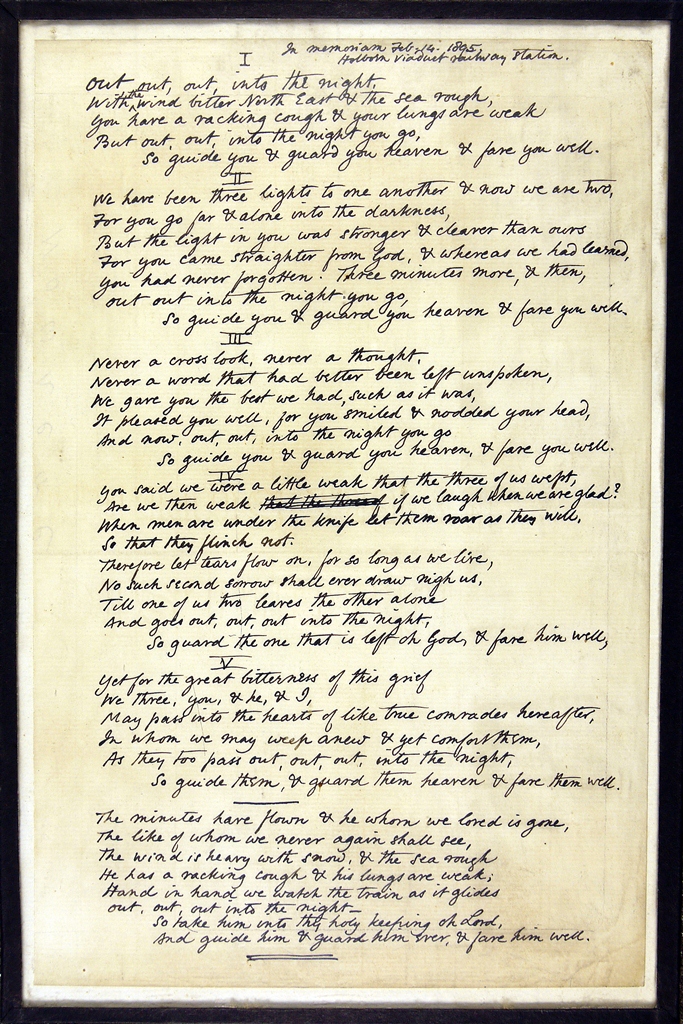 In memoriam Feb. 14. 1895,
Holborn Viaduct railway Station.
I
Out, out, out, into the night,
With the wind bitter North East & the sea rough,
You have a racking cough & your lungs are weak
But out, out, into the night you go,
So guide you & guard you heaven & fare you well.
II
We have been three lights to one another & now we are two,
For you go far & alone into the darkness,
But the light in you was stronger & clearer than ours
For you came straighter from God, & whereas we had learned,
You had never forgotten. Three minutes more, & then,
out out into the night you go,
So guide you & guard you heaven & fare you well.
III
Never a cross look, never a thought,
Never a word that had better been left unspoken,
We gave you the best we had, such as it was,
It pleased you well, for you smiled & nodded your head,
And now, out, out, into the night you go
So guide you & guard you heaven, & fare you well.
IV
You said we were a little weak that the three of us wept,
Are we then weak that the three of if we laugh when we are glad?
When men are under the knife let them roar as they will,
So that they flinch not.
Therefore let tears flow on, for so long as we live,
No such second sorrow shall ever draw nigh us,
Till one of us two leaves the other alone
And goes out, out, out into the night,
So guard the one that is left oh God, & fare him well,
V
Yet for the great bitterness of this grief
We three, you, & he, & I,
May pass into the hearts of like true comrades hereafter,
In whom we may weep anew & yet comfort them,
As they too pass out, out, out, into the night,
So guide them, & guard them heaven & fare them well.
The minutes have flown & he whom we loved is gone,
The like of whom we never again shall see,
The wind is heavy with snow, & the sea rough
He has a racking cough & his lungs are weak;
Hand in hand we watch the train as it glides
out, out, out into the night—
So take him into thy holy keeping oh Lord,
And guide him & guard him ever, & fare him well.